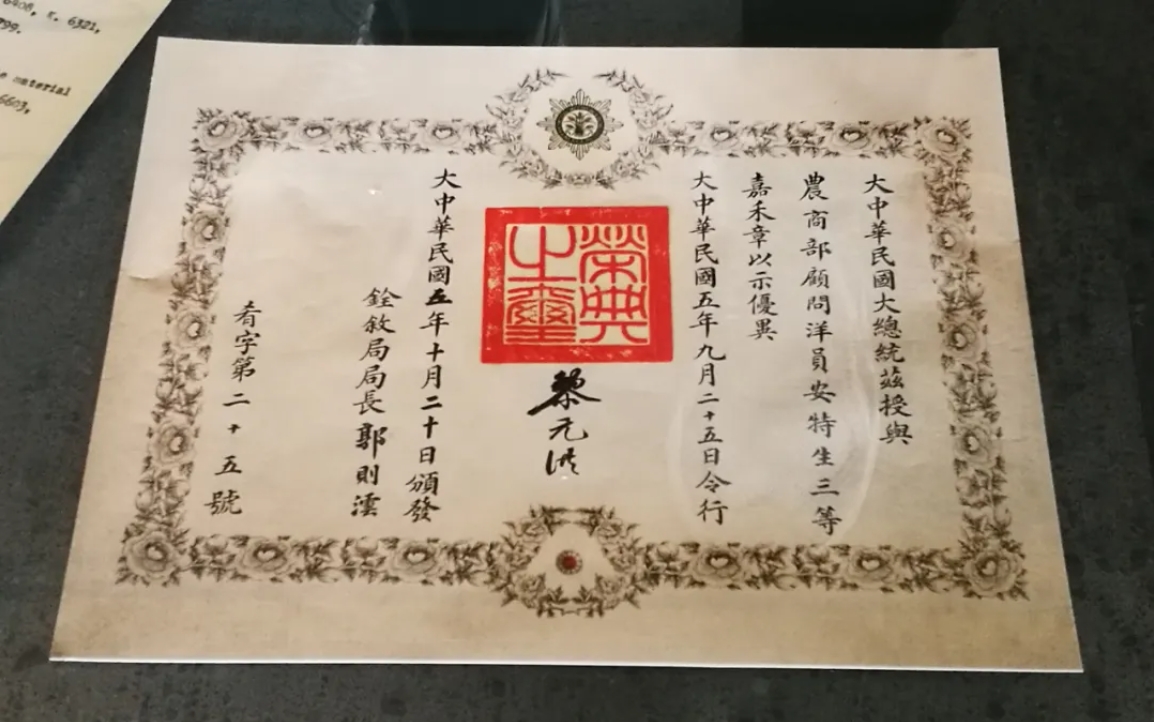 大中華民國大總統茲授與
農商部顧問洋員安特生三等
嘉禾章以示優異
大中華民國五年九月二十五日令行
榮典之璽
黎元洪
大中華民國五年十月二十日頒發
銓敘局局長郭則澐
字第二十五號
6408, r. 6321,
material
6603,